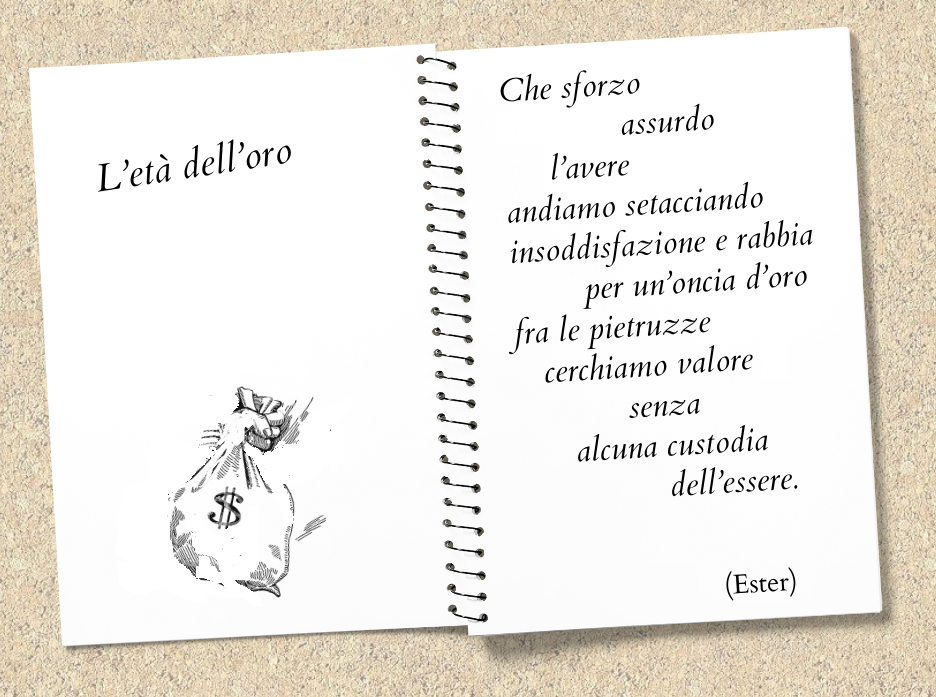 L'età dell'oro
$
Che sforzo
assurdo
l'avere
andiamo setacciando
insoddisfazione e rabbia
per un'oncia d'oro
fra le pietruzze
cerchiamo valore
senza
alcuna custodia
dell'essere.
(Ester)